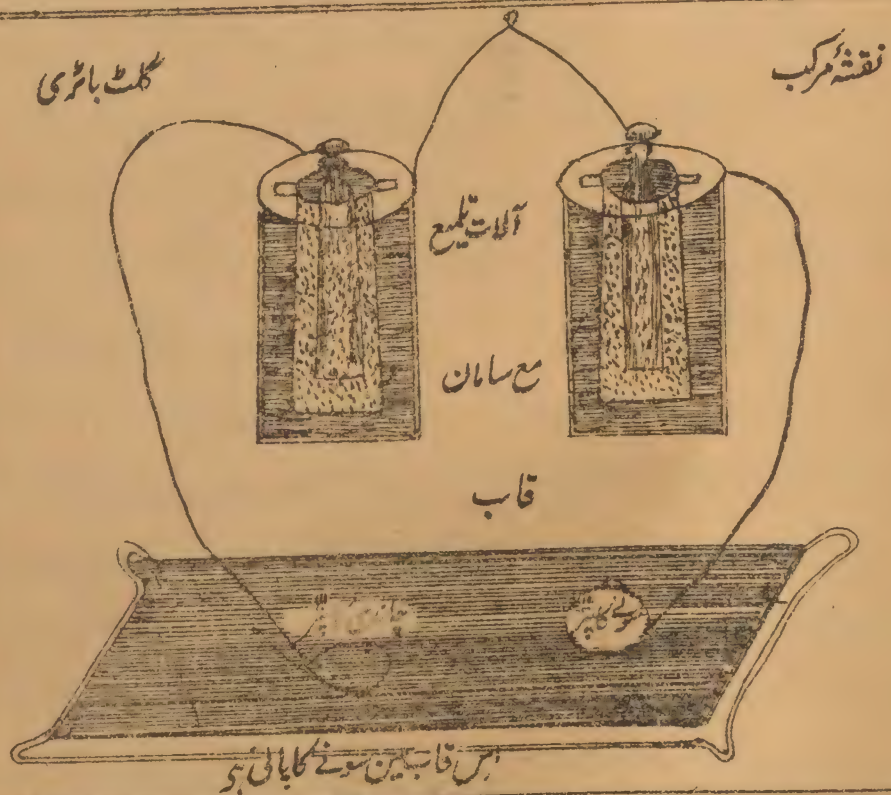 نقشۂ مرکب
گلٹ باٹری
آلات تلمیع
مع سامان
قاب
سونے کا پتر
چاندی
اس قاب مین سونے کا پانی ہی